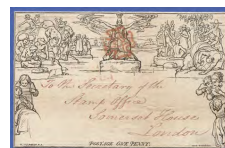 To the Secretary of the
Stamp Office
Somerset House
London
POSTAGE ONE PENNY.